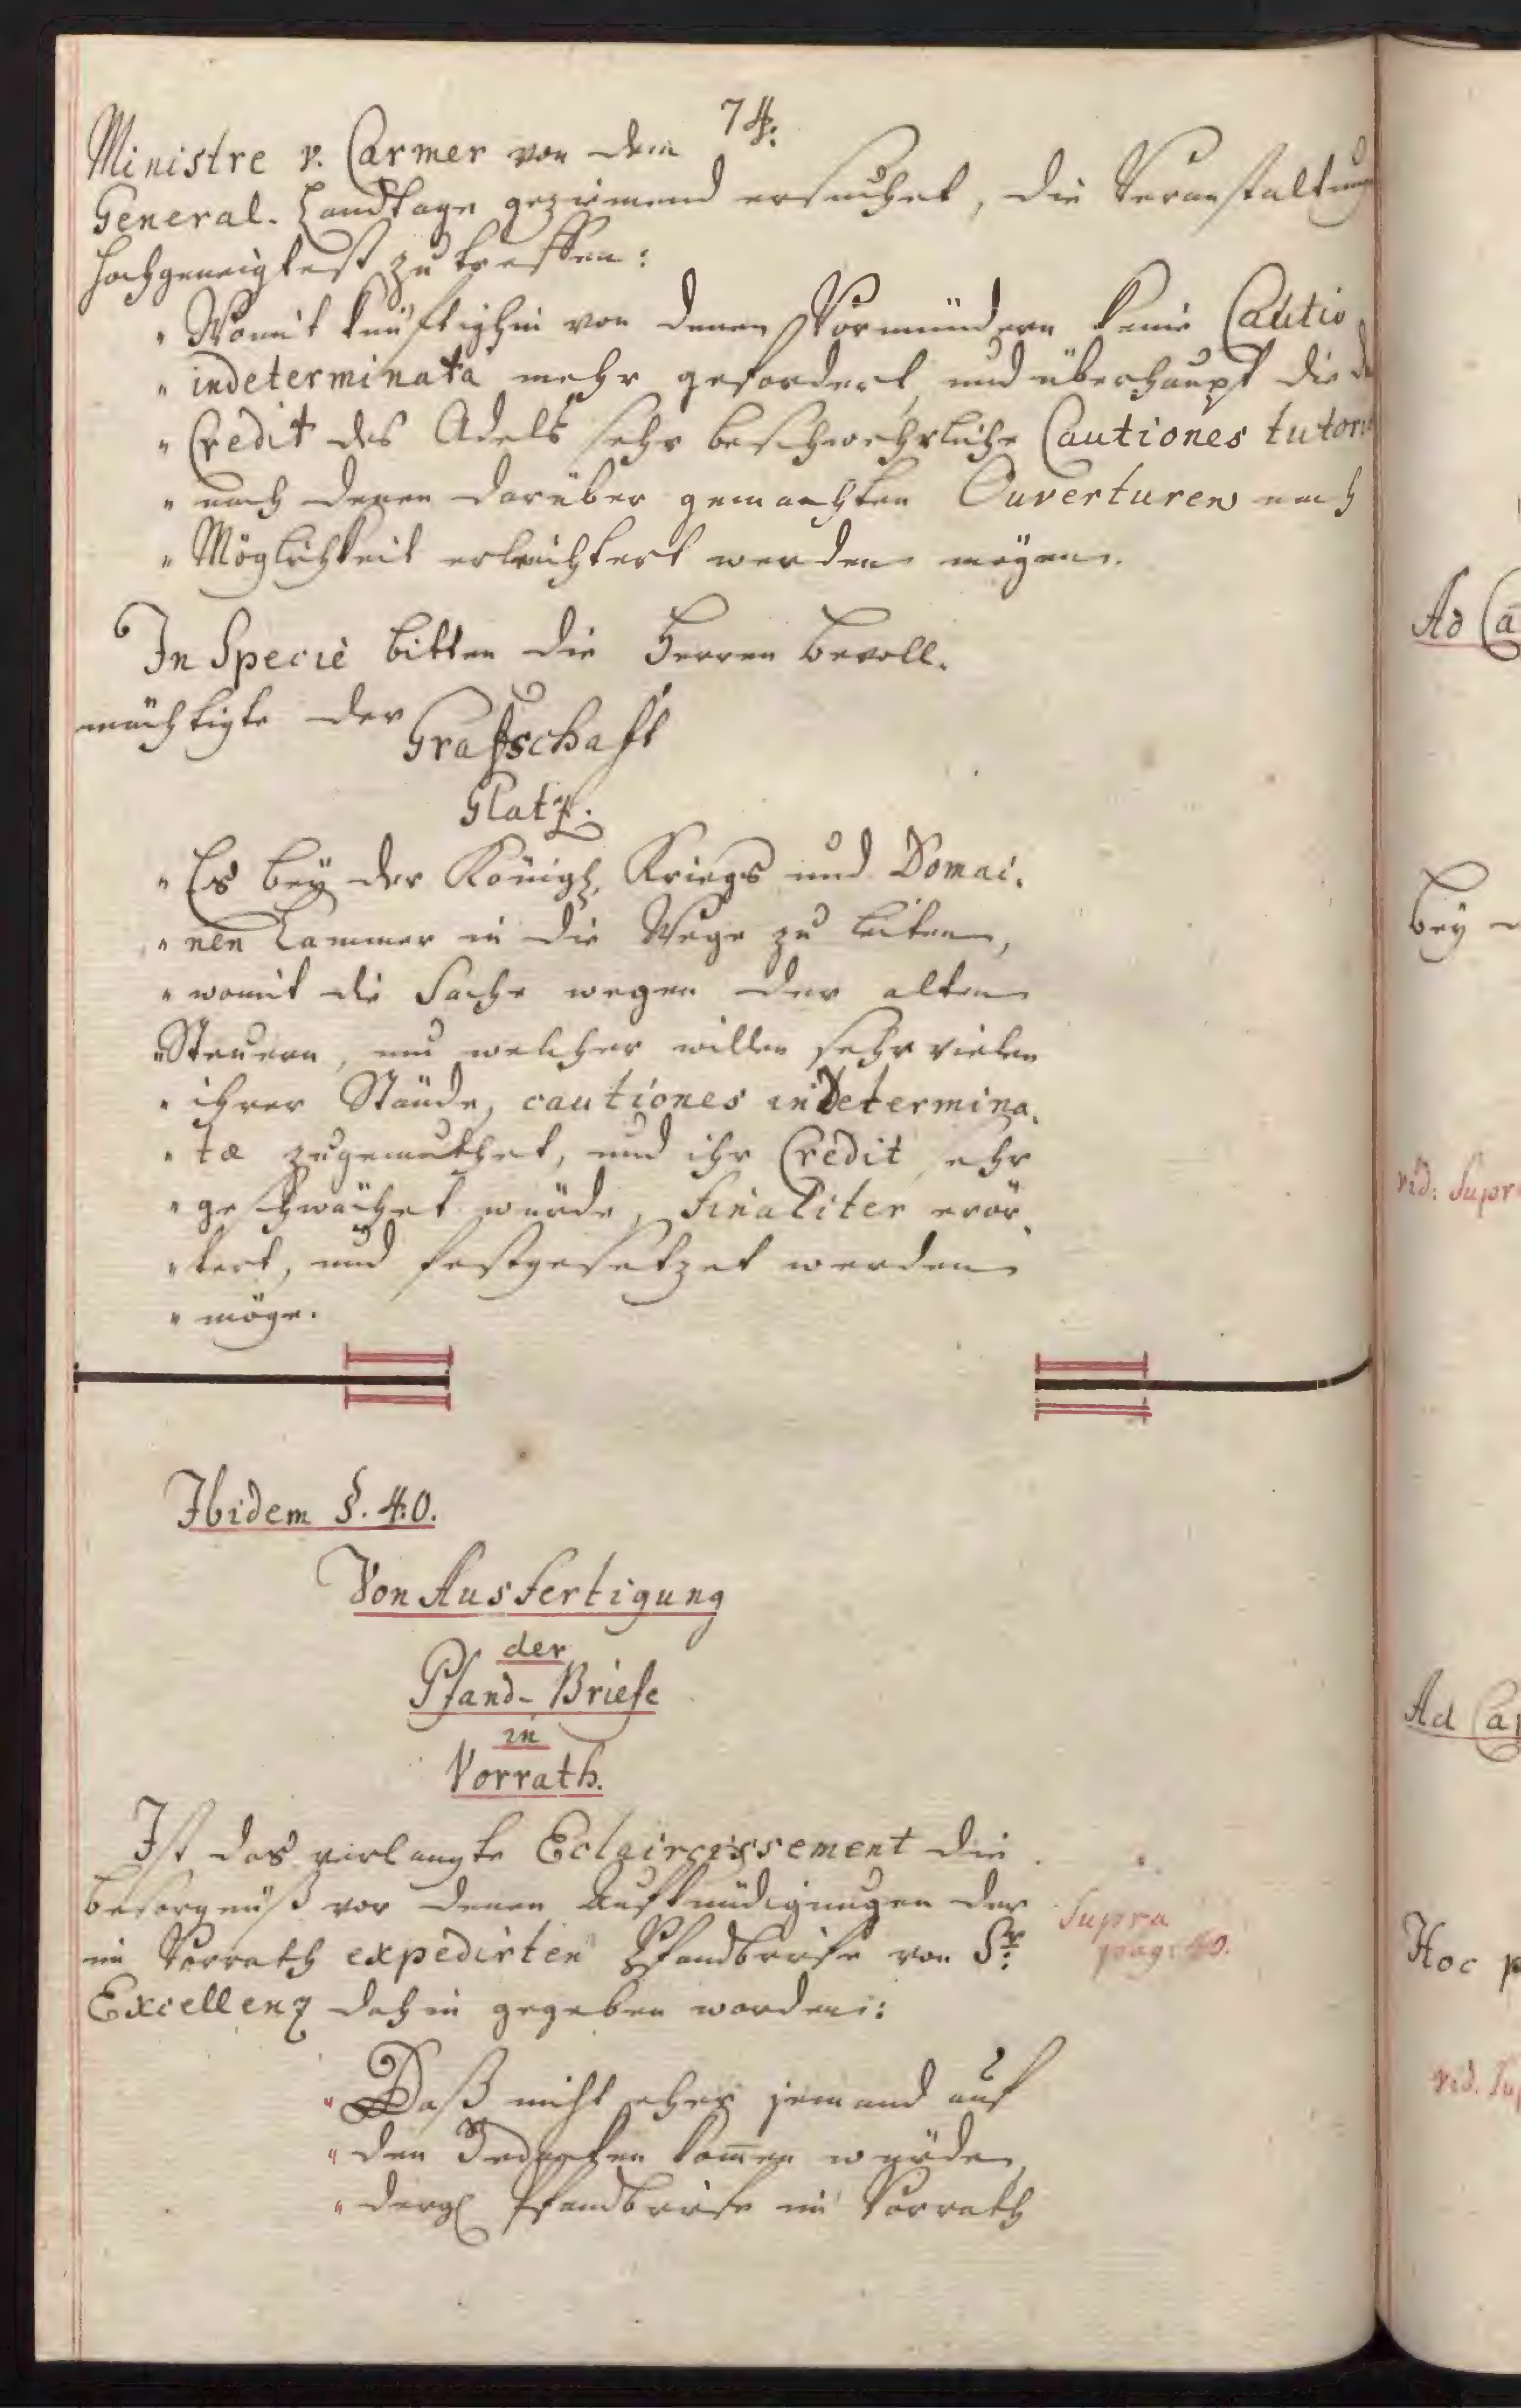 74.
Ministre v. Carmer von dem
General-Landtage geziemend ersuchet, die Veranstaltung
hochgeneigtest zu treffen:
" Womit künftighin von denen Vormündern keine Cautio
" indeterminata mehr gefordert, und überhaupt die
" Credit des Adels sehr beschwehrliche Cautiones tutor
" nach denen darüber gemachten Ouverturen nach
" Möglichkeit erleichtert werden mögen.
In Specie bitten die Herren Bevoll-
mächtigte der Grafschaft
Glatz.
" Es bey der Königl. Kriegs und Domai-
" nen Cammer in die Wege zu leiten,
" womit die Sache wegen der alten
" Steuern, um welcher willen sehr vielen
" ihrer Stände, cautiones indetermina-
" tæ zugemuthet, und ihr Credit sehr
" geschwächet würde, finaliter erör-
" tert, und festgesetzet werden
" möge.
Ibidem §. 40.
Von Ausfertigung
der
Pfand-Briefe
in
Vorrath.
Ist das verlangte Eclaircissement die
Besorgnüß vor denen Aufkündigungen der
im Vorrath expedirten Pfandbriefe von Sr.
Excellenz dahin gegeben worden:
Supra
pag: 40.
" Daß nicht eher jemand auf
" den Gedancken kom̄en würde,
" dergl. Pfandbriefe in Vorrath
Ad Ca
bey
vid: Supr
Ad Ca
Hoc p
vid. Su